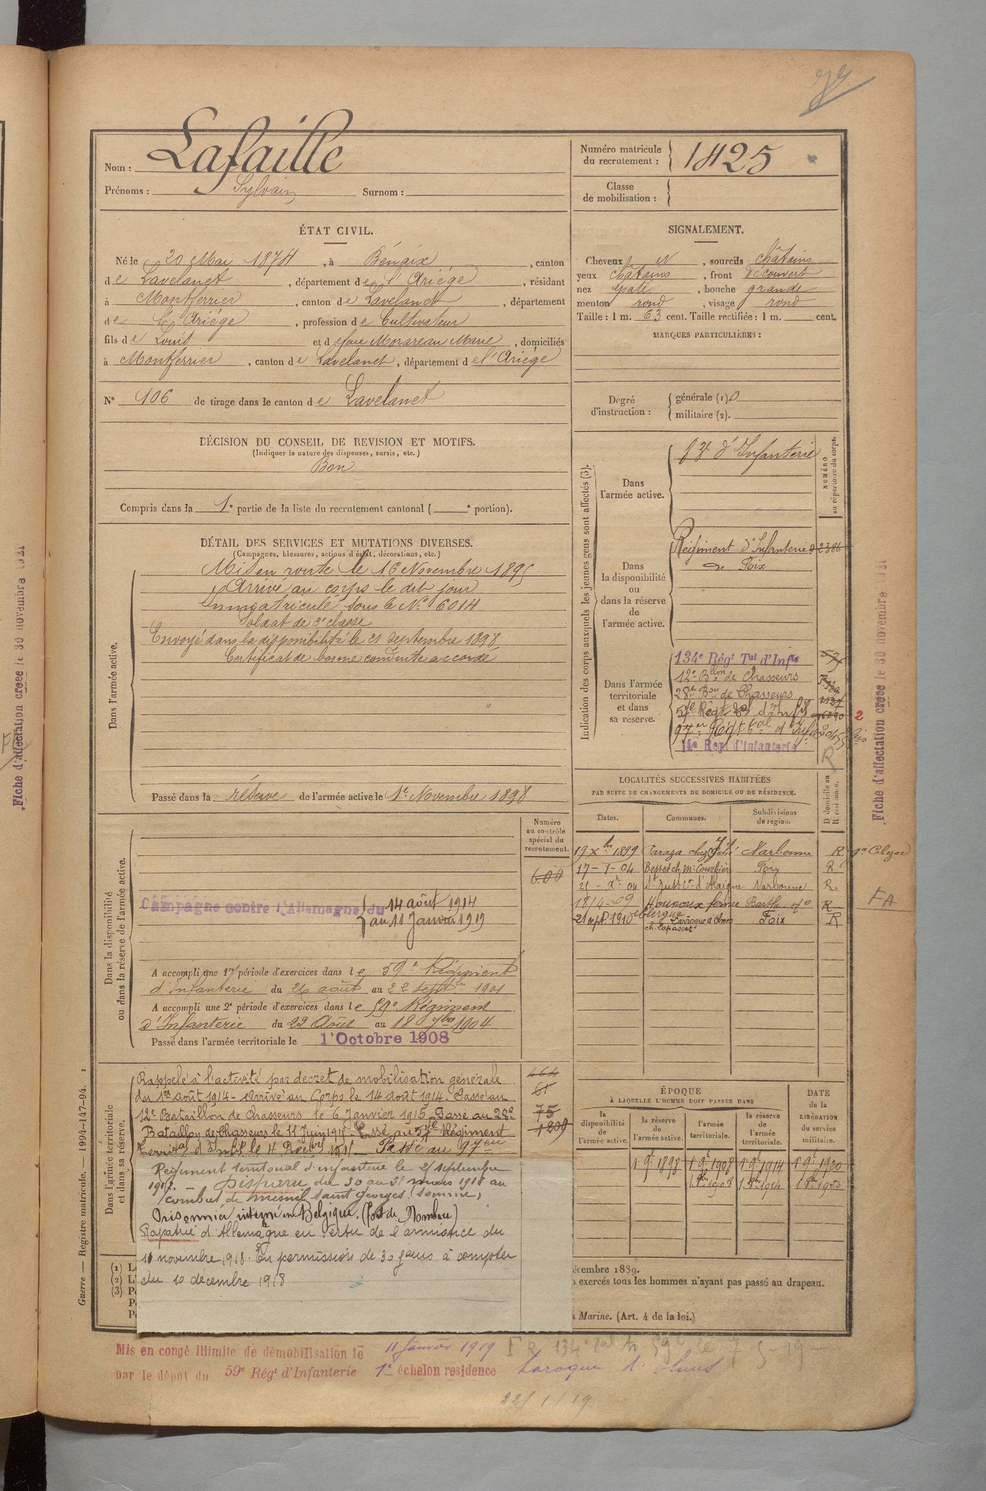 Nom : Lafaille
Prénoms : Sylvain Surnom :
Numéro matricule du recrutement : 1425
Classe de mobilisation :
ÉTAT CIVIL.
Né le 20 Mai 1874, à Bénaix, canton
de Lavelanet, département de l'Ariège, résidant
à Montferrier, canton de Lavelanet, département
de l'Ariège, profession de Cultivateur
fils de Louis et de Marie, domiciliés
à Montferrier, canton de Lavelanet, département de l'Ariège
N° 106 de tirage dans le canton de Lavelanet
SIGNALEMENT.
Cheveux N, sourcils châtains
yeux châtains, front découvert
nez épaté, bouche grande
menton rond, visage rond
Taille : 1 m. 63 cent. Taille rectifiée : 1 m. cent.
MARQUES PARTICULIÈRES :
Degré d'instruction : générale (1) 0
militaire (2).
DÉCISION DU CONSEIL DE REVISION ET MOTIFS.
(Indiquer la nature des dispenses, sursis, etc.)
Bon
Compris dans la 1e partie de la liste du recrutement cantonal ( e portion).
DÉTAIL DES SERVICES ET MUTATIONS DIVERSES.
(Campagnes, blessures, actions d'éclat, décorations, etc.)
Dans l'armée active.
Mis en route le 16 Novembre 1895
Arrivé au corps le dit jour
Immatriculé sous le N° 6014
Soldat de 2e classe
Envoyé dans la disponibilité le 21 septembre 1897
Certificat de bonne conduite accordé
Passé dans la réserve de l'armée active le 1er Novembre 1898
Indication des corps auxquels les jeunes gens sont affectés (3).
NUMÉRO au répertoire du corps.
Dans l'armée active.
d'Infanterie
Dans la disponibilité ou dans la réserve de l'armée active.
Régiment d'Infanterie
de Foix
Dans l'armée territoriale et dans sa réserve.
134e Régt Tal d'Infie
12e Bon de Chasseurs
28e Bon de Chasseurs
14e Reg. d'Infanterie
LOCALITÉS SUCCESSIVES HABITÉES
PAR SUITE DE CHANGEMENTS DE DOMICILE OU DE RÉSIDENCE.
Dates. Communes. Subdivisions de région. D domicile ou R résidence.
19 Xbre 1899 Narbonne R
17-1-04 Foix R
21-Xe 04 Narbonne R
18/4-09 R
21 sept 1910 Laroque d'Olmes Foix R
Dans la disponibilité ou dans la réserve de l'armée active.
Numéro au contrôle spécial du recrutement.
Campagne contre l'Allemagne du 14 août 1914
au 11 Janvier 1919
A accompli une 1re période d'exercices dans le 59e Régiment
d'Infanterie du 26 août au 22 septbre 1901
A accompli une 2e période d'exercices dans le 59e Régiment
d'Infanterie du 22 Août au 18 7bre 1904
Passé dans l'armée territoriale le 1er Octobre 1908
Dans l'armée territoriale et dans sa réserve.
Rappelé à l'activité par décret de mobilisation générale
du 1er août 1914. Arrivé au Corps le 14 Août 1914. Passé au
12e Bataillon de Chasseurs le 6 Janvier 1915. Passé au 28e
Bataillon de Chasseurs le 11 Juin 1915. Passé au 57e Régiment
Territal d'Inf. Passé au 97eme
Régiment territorial d'infanterie le 2 septembre
1917. - Disparu du 30 au 31 mars 1918 au
combat de mesnil saint georges (Somme)
Prisonnier interné en Belgique. (fort de Namur)
Rapatrié d'Allemagne en vertu de l'armistice du
11 novembre 1918. En permission de 30 jours à compter
du 10 decembre 1918
75
1209
ÉPOQUE
À LAQUELLE L'HOMME DOIT PASSER DANS
la disponibilité de l'armée active. la réserve de l'armée active. l'armée territoriale. la réserve de l'armée territoriale. DATE de la LIBÉRATION du service militaire.
1 9e 1897 1 9e 1908 1 9e 1914 1 9e 1920
écembre 1889.
exercés tous les hommes n'ayant pas passé au drapeau.
Marine. (Art. 4 de la loi.)
Guerre — Registre matricule. — 1994-147-94.
Mis en congé illimité de démobilisation le 11 Janvier 1919
par le dépôt du 59e Régt d'Infanterie 1er échelon residence Laroque d'Olmes
22/1/19
Fiche d'affectation créée le 30 novembre 1921
Fiche d'affectation créée le 30 novembre 1921
FA